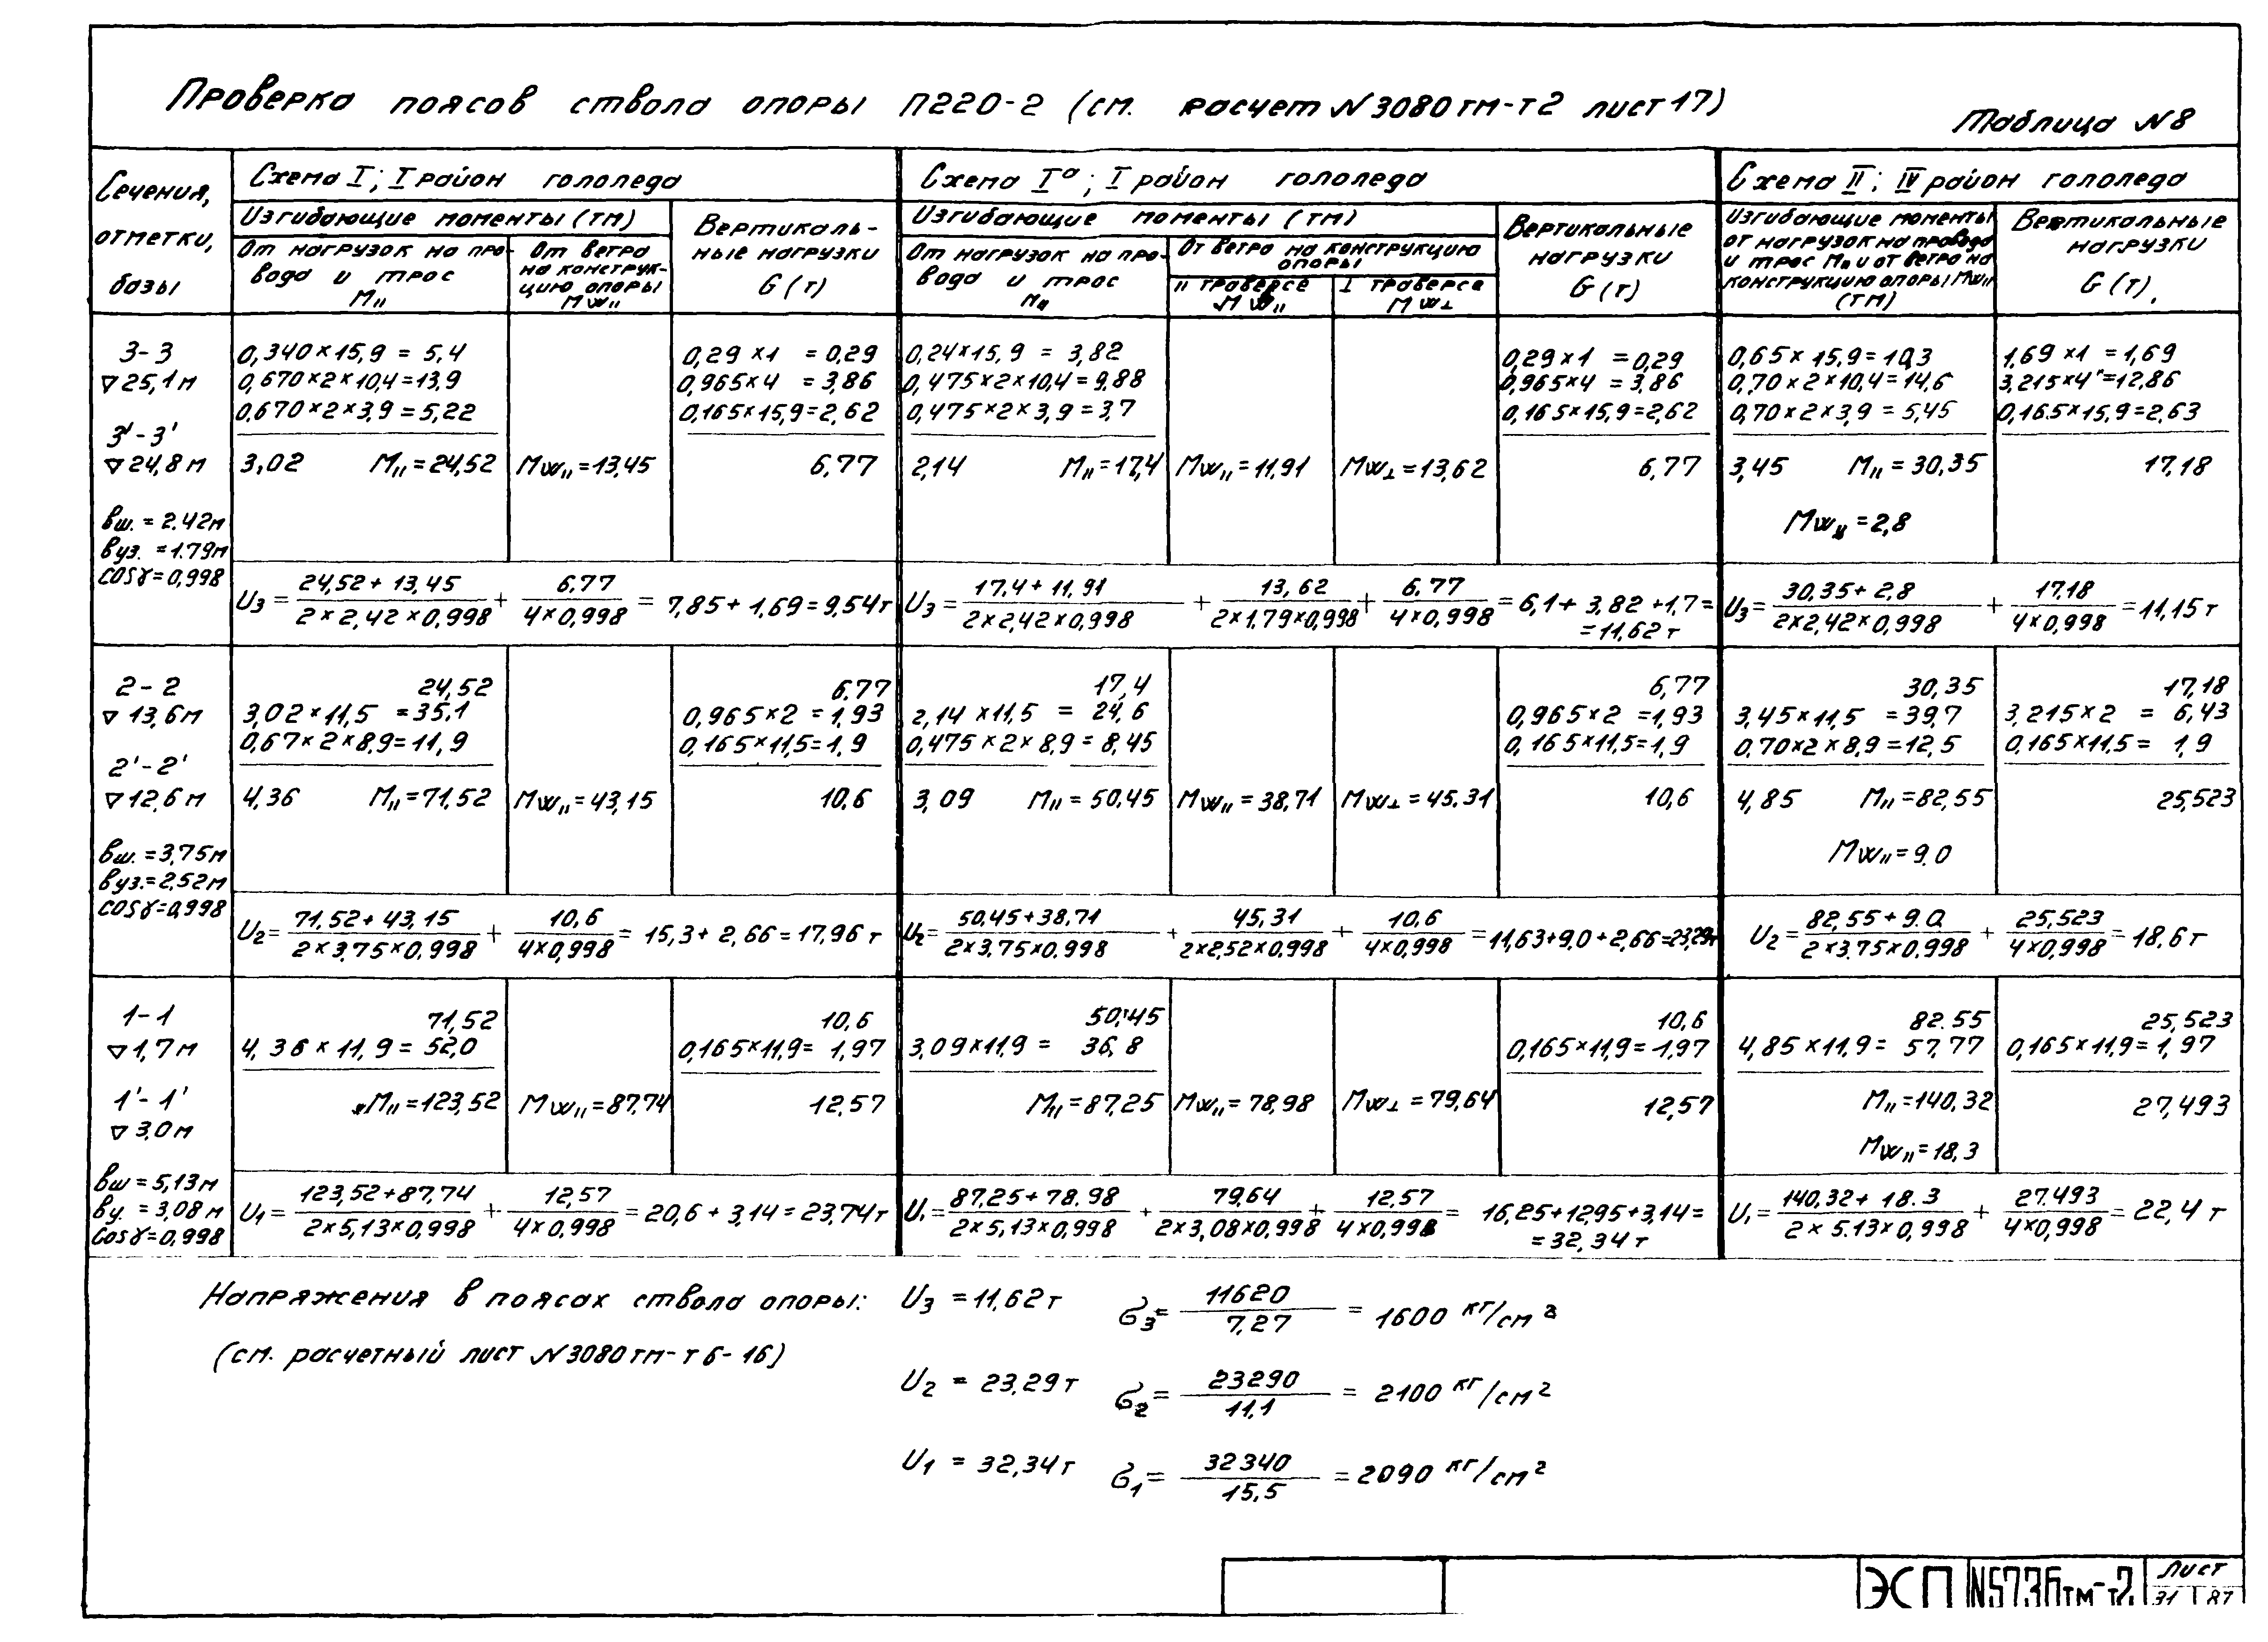 Проверка поясов ствола опоры П220-2 (см. расчет N3080тм-т2 лист 17)
Таблица N8
Сечения, отметки, базы
Схема I; I район гололеда
Изгибающие моменты (тм)
От нагрузок на провода и трос M||
От ветра на конструкцию опоры Mw||
Вертикальные нагрузки G (т)
Схема Iа; I район гололеда
Изгибающие моменты (тм)
От нагрузок на провода и трос M||
От ветра на конструкцию опоры
|| траверсе Mw||
I траверсе Mw⊥
Вертикальные нагрузки G (т)
Схема II; IV район гололеда
Изгибающие моменты от нагрузок на провода и трос M|| и от ветра на конструкцию опоры Mw|| (тм)
Вертикальные нагрузки G (т).
3-3
▽25,1м
3'-3'
▽24,8м
вш. = 2.42м
вуз. = 1.79м
cosγ=0,998
0,340×15,9 = 5,4
0,670×2×10,4=13,9
0,670×2×3,9=5,22
3,02 M||=24,52
Mw||=13,45
0,29×1 = 0,29
0,965×4 = 3,86
0,165×15,9=2,62
6,77
0,24×15,9 = 3,82
0,475×2×10,4=9,88
0,475×2×3,9=3,7
2,14 M||=17,4
Mw||=11,91
Mw⊥=13,62
0,29×1 =0,29
0,965×4 = 3,86
0,165×15,9=2,62
6,77
0,65×15,9=10,3
0,70×2×10,4=14,6
0,70×2×3,9 = 5,45
3,45 M||=30,35
Mw||=2,8
1,69×1 = 1,69
3,215×4=12,86
0,165×15,9=2,63
17,18
U3 = 24,52+13,45 / 2×2,42×0,998 + 6,77 / 4×0,998 = 7,85+1,69=9,54т
U3 = 17,4+11,91 / 2×2,42×0,998 + 13,62 / 2×1.79×0,998 + 6,77 / 4×0,998 = 6,1+3,82+1,7=
=11,62 т
U3 = 30,35+2,8 / 2×2,42×0,998 + 17,18 / 4×0,998 =11,15т
2-2
▽13,6м
2'-2'
▽12,6м
вш. = 3,75м
вуз.=2,52м
cosγ=0,998
24,52
3,02×11,5 =35,1
0,67×2×8,9=11,9
4,36 M||=71,52
Mw||=43,15
6,77
0,965×2 = 1,93
0,165×11,5=1,9
10,6
17,4
2,14×11,5 = 24,6
0,475×2×8,9=8,45
3,09 M||=50,45
Mw||=38,71
Mw⊥=45.31
6,77
0,965×2 =1,93
0,165×11,5=1,9
10,6
30,35
3,45×11,5 =39,7
0,70×2×8,9=12,5
4,85 M||=82,55
Mw||=9.0
17,18
3,215×2 = 6,43
0,165×11,5= 1,9
25,523
U2= 71,52+43,15 / 2×3,75×0,998 + 10,6 / 4×0,998 = 15,3+2,66=17,96 т
U2= 50,45+38,71 / 2×3,75×0,998 + 45,31 / 2×2,52×0,998 + 10,6 / 4×0,998 =11,63+9,0+2,66=23,29т
U2= 82,55+9.0 / 2×3,75×0,998 + 25,523 / 4×0,998 =18,6т
1-1
▽1,7м
1'-1'
▽3,0м
вш = 5,13м
ву. = 3,08м
cosγ=0,998
71,52
4,36×11,9= 52,0
M||=123,52
Mw||=87,74
10,6
0,165×11,9= 1,97
12,57
50,45
3,09×11,9 = 36,8
M||=87,25
Mw||=78,98
Mw⊥=79,64
10,6
0,165×11,9=1,97
12,57
82.55
4,85×11,9= 57,77
M||=140,32
Mw||=18,3
25,523
0,165×11,9=1,97
27,493
U1= 123,52+87,74 / 2×5,13×0,998 + 12,57 / 4×0,998 =20,6+3,14=23,74т
U1= 87,25+78.98 / 2×5,13×0,998 + 79,64 / 2×3,08×0,998 + 12,57 / 4×0,998 = 16,25+12,95+3,14=
=32,34 т
U1= 140,32+18.3 / 2×5.13×0,998 + 27.493 / 4×0,998 =22,4 т
Напряжения в поясах ствола опоры:
(см. расчетный лист N3080тм-т6-16)
U3 =11,62т σ3= 11620 / 7,27 = 1600 кг/см2
U2 = 23,29т σ2= 23290 / 11,1 = 2100 кг/см2
U1 = 32,34т σ1= 32340 / 15,5 =2090 кг/см2
ЭСП N5736тм-т2 Лист
31 87